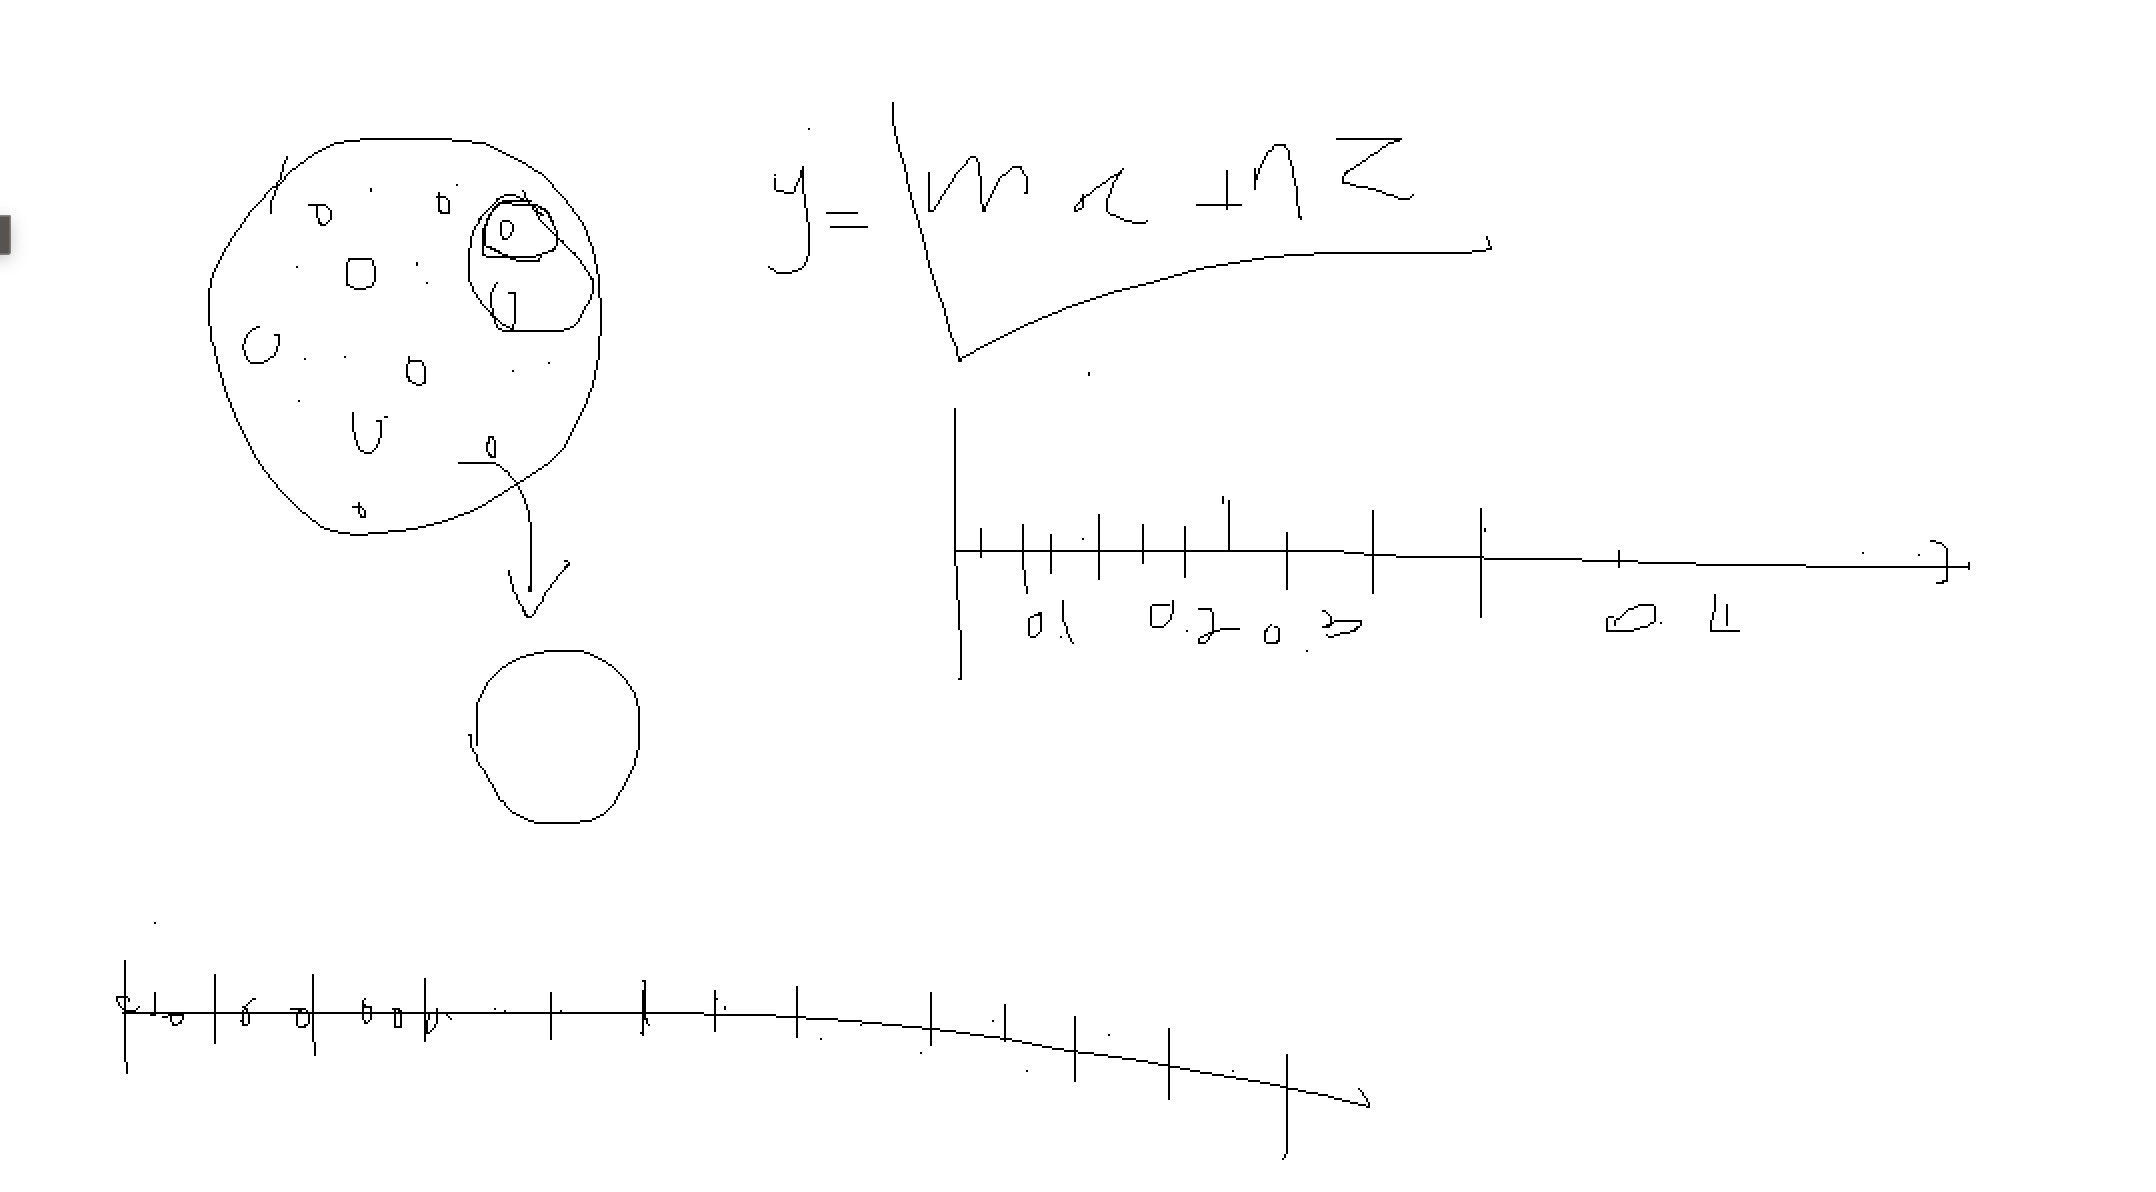 y = mx + nz
0.1 0.2 0.3 0.4